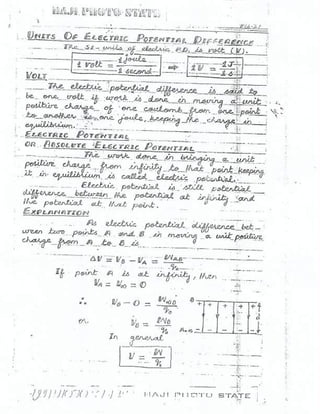 HAJI PHOTO STATE
UNITS OF ELECTRIC POTENTIAL DIFFERENCE
The SI-units of electric P.D. is volt (V).
1 volt = 1 joule / 1 second ⇒ 1V = 1J / 1s
VOLT
The electric potential difference is said to
be one volt if work is done in moving a unit
positive charge of one coulomb from one point
to another is one joule, keeping the charge in
equilibrium.
ELECTRIC POTENTIAL
OR ABSOLUTE ELECTRIC POTENTIAL
The work done in bringing a unit
positive charge from infinity to that point keeping
it in equilibrium is called electric potential.
Electric potential is still potential
difference between the potential at infinity and
the potential at that point.
EXPLANATION
As electric potential difference bet-
ween two points A and B in moving a unit positive
charge from A to B is
ΔU = V_B - V_A = W_AB / q_o
If point A is at infinity, then
V_A = V_∞ = 0
∴ V_B - 0 = W_∞B / q_o
or V_B = W_B / q_o
In general
V = W / q_o
B
A
HAJI PHOTO STATE